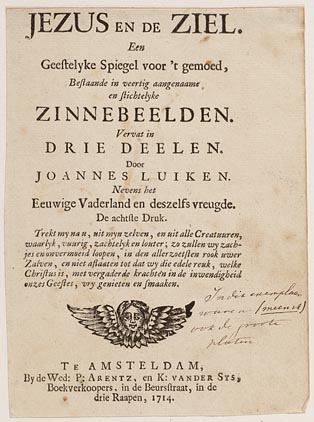 JEZUS EN DE ZIEL.
Een
Geestelyke Spiegel voor 't gemoed,
Bestaande in veertig aangenaame
en stichtelyke
ZINNEBEELDEN.
Vervat in
DRIE DEELEN.
Door
JOANNES LUIKEN.
Nevens het
Eeuwige Vaderland en deszelfs vreugde.
De achtste Druk.
Trekt my na u, uit myn zelven, en uit alle Creatuuren,
waarlyk, vuurig, zachtelyk en louter; zo zullen wy zach-
jes en onvermoeid loopen, in den allerzoetsten rook uwer
Zalven, en niet aflaaten tot dat wy die edele reuk, welke
Christus is, met vergaderde krachten in de inwendigheid
onzes Geestes, vry genieten en smaaken.
In dit exemplaar
waren (meenik)
ook de groote
platen
TE AMSTELDAM,
By de Wed: P: ARENTZ, en K: VANDER SYS,
Boekverkoopers, in de Beursstraat, in de
drie Raapen, 1714.